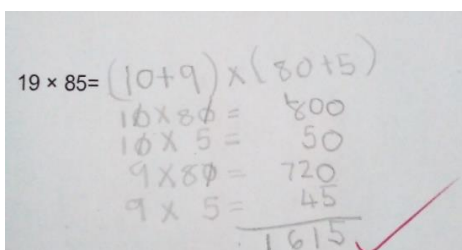 19 × 85= (10+9)×(80+5)
10×80= 800
10×5= 50
9×80= 720
9×5= 45
1615